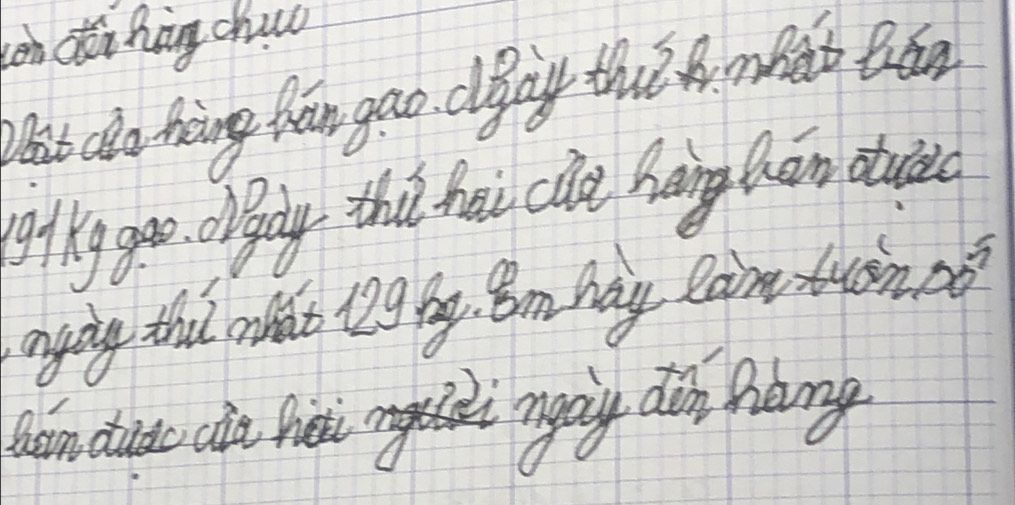 đến hàng chục
Một cửa hàng bán gạo. Ngày thứ h. nhất bán
191kg gạo. Ngày thứ hai cửa hàng bán được
ngày thứ nhất 129 kg. Em hãy làm tuồn số
bán được của hai ngày đến hàng